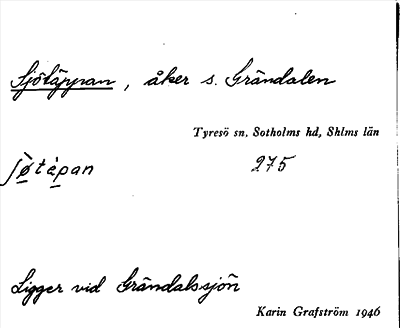 Sjötäppan, åker s. Grändalen
Tyresö sn. Sotholms hd, Shlms län
ʃø̀tèpan 275
Ligger vid Grändalssjön
Karin Grafström 1946